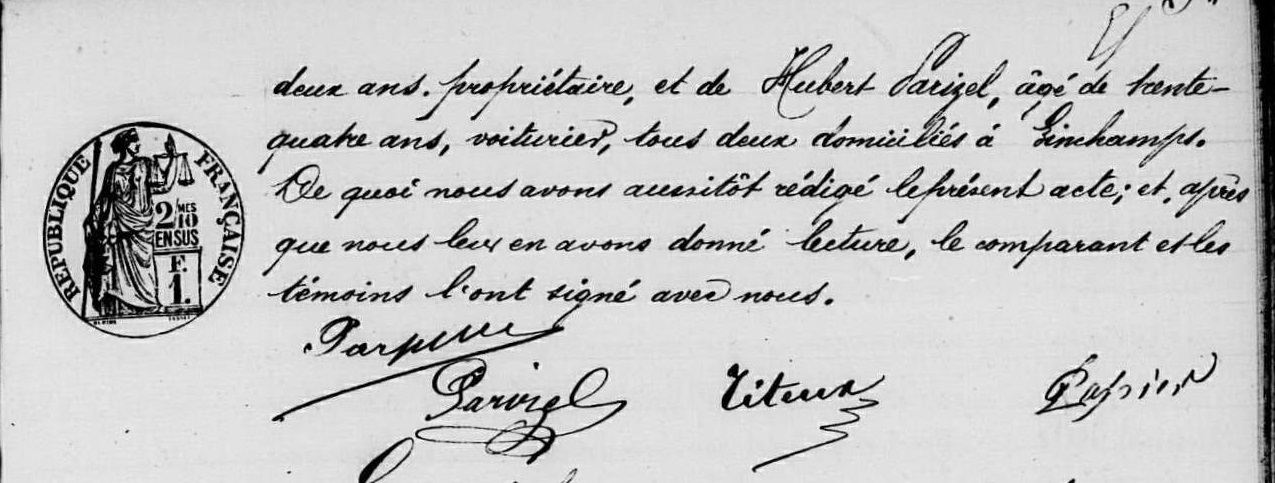 deux ans, propriétaire, et de Hubert Parizel, âgé de trente-
quatre ans, voiturier, tous deux domiciliés à Linchamps.
De quoi nous avons aussitôt rédigé le présent acte; et, après
que nous leur en avons donné lecture, le comparant et les
témoins l'ont signé avec nous.
RÉPUBLIQUE FRANÇAISE
2/10 MES
EN SUS
F.
1.
Parizel Titeux Papier